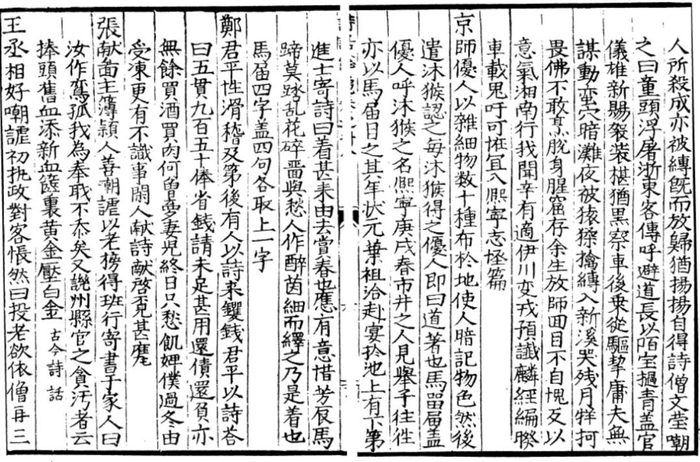 人所殺戍亦被縛旣而放歸猶揚揚自得詩僧文瑩嘲
之曰童頭浮屠浙東客傳呼避道長以陌室撾靑盖官
儀雄新賜袈裟椹猶黑祭車後乘從驅摯庸夫無
謀動蛮穴暗灘夜被猿猱擒縛入新溪哭殘月牂牁
畏佛不敢烹脫身腥窟存余生放師回目不自愧反以
意氣湘南行我聞辛有適伊川变戎預讖麟經編睽
車載鬼吁可怪宜入熙寧志怪篇
京師優人以雜細物數十種布於地使人暗記物色然後
遣沐猴認之每沐猴得之優人即曰道著也馬留盖
優人呼沐猴之名熙寧庚戌春市井之人見舉子往往
亦以馬留目之其年狀元葉祖洽赴宴於池上有下第
進士寄詩曰着甚来由去賞春也應有意惜芳辰馬
蹄莫踏乱花碎留與愁人作醉茵細而繹之乃是着也
馬留四字盖四句各取上一字
鄭君平性滑稽及第後有人以詩来鑵錢君平以詩荅
曰五貫九百五十俸省錢請未足甚用還債還負亦
無餘買酒買肉何曾夢妻兒終日只愁飢婢僕過冬由
受凍更有不識事閑人献詩献啓覔甚麽
張献圖主簿潁人善嘲謔以老榜得班行寄書子家人曰
汝作鴛孤我為奉軄不忝矣又說州縣官之貪汙者云
捧頭舊血添新血餕裏黃金壓白金 古今詩話
王丞相好嘲謔初执政對客悵然曰投老欲依僧再三